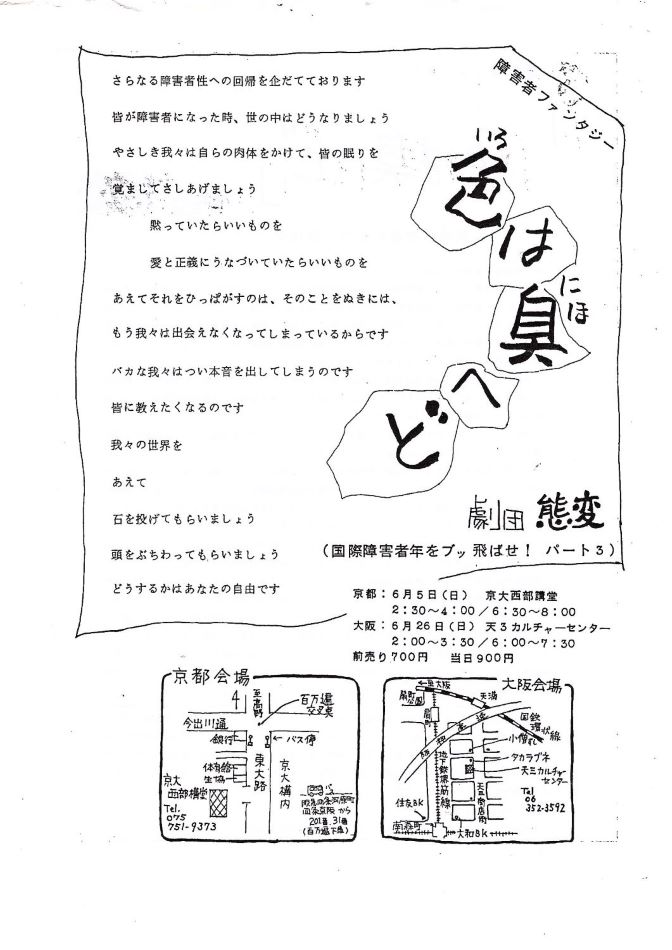 障害者ファンタジー
いろ
色は
にほ
臭へ
ど
劇団 態変
（国際障害者年をブッ飛ばせ！ パート３）
さらなる障害者性への回帰を企だてております
皆が障害者になった時、世の中はどうなりましょう
やさしき我々は自らの肉体をかけて、皆の眠りを
覚ましてさしあげましょう
黙っていたらいいものを
愛と正義にうなづいていたらいいものを
あえてそれをひっぱがすのは、そのことをぬきには、
もう我々は出会えなくなってしまっているからです
バカな我々はつい本音を出してしまうのです
皆に教えたくなるのです
我々の世界を
あえて
石を投げてもらいましょう
頭をぶちわってもらいましょう
どうするかはあなたの自由です
京都：６月５日（日） 京大西部講堂
２:３０～４:００／６:３０～８:００
大阪：６月２６日（日） 天３カルチャーセンター
２:００～３:３０／６:００～７:３０
前売り７００円 当日９００円
京都会場
至高野
百万遍
交叉点
今出川通
銀行
バス停
体育館
生協
東大路
京大構内
京大
西部構堂
Tel.
075
751-9373
四条京阪から
201番,31番
(百万遍下車)
大阪会場
至大阪
扇町
公園
扇町
天満
国鉄
環状線
小僧ずし
タカラブネ
天三カルチャー
センター
地下鉄堺筋線
天三商店街
住友BK
南森町
大和BK
Tel
06
352-3592